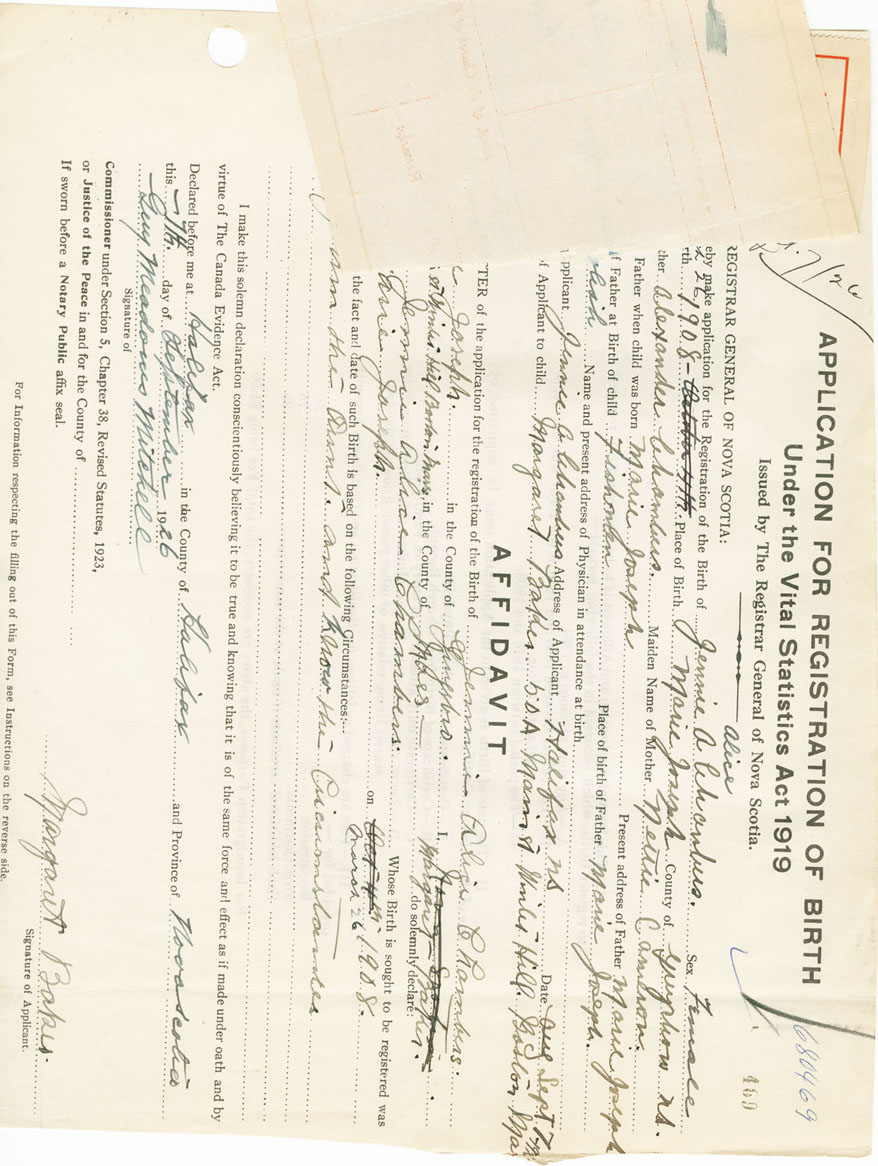 680469
APPLICATION FOR REGISTRATION OF BIRTH
Under the Vital Statistics Act 1919
469
Issued by The Registrar General of Nova Scotia.
REGISTRAR GENERAL OF NOVA SCOTIA:
Alice
eby make application for the Registration of the Birth of Jennie A Chambers. Sex Female
rth 26, 1908 - October 4th. Place of Birth Marie Joseph County of Guysboro ns.
ther Alexander Chambers. Maiden Name of Mother Nettie Camron.
Father when child was born Marie Joseph Present address of Father Marie Joseph
f Father at Birth of child Fisherman Place of birth of Father Marie Joseph.
Name and present address of Physician in attendance at birth
Date Sept 7
pplicant Jennie A Chambers Address of Applicant Halifax ns
f Applicant to child Margaret Baker. Winter Hill. Boston Mas
AFFIDAVIT
TER of the application for the registration of the Birth of Jennie Alice Chambers.
Joseph. in the County of Guysboro. I,
Margaret Baker.
Winter Hill Boston Mass in the County of do solemnly declare:
Jennie Alice Chambers. Whose Birth is sought to be registered was
Marie Joseph. on Oct 4th 1908.
March 26
the fact and date of such Birth is based on the following Circumstances:-
am the Aunt. and know the Circumstances
I make this solemn declaration conscientiously believing it to be true and knowing that it is of the same force and effect as if made under oath and by
virtue of The Canada Evidence Act.
Declared before me at Halifax in the County of Halifax and Province of Nova Scotia
this 7th. day of September 1926
Guy Meadows Mitchell
Signature of
Margaret Baker.
Signature of Applicant.
Commissioner under Section 5, Chapter 38, Revised Statutes, 1923,
or Justice of the Peace in and for the County of
If sworn before a Notary Public affix seal.
For Information respecting the filling out of this Form, see Instructions on the reverse side.